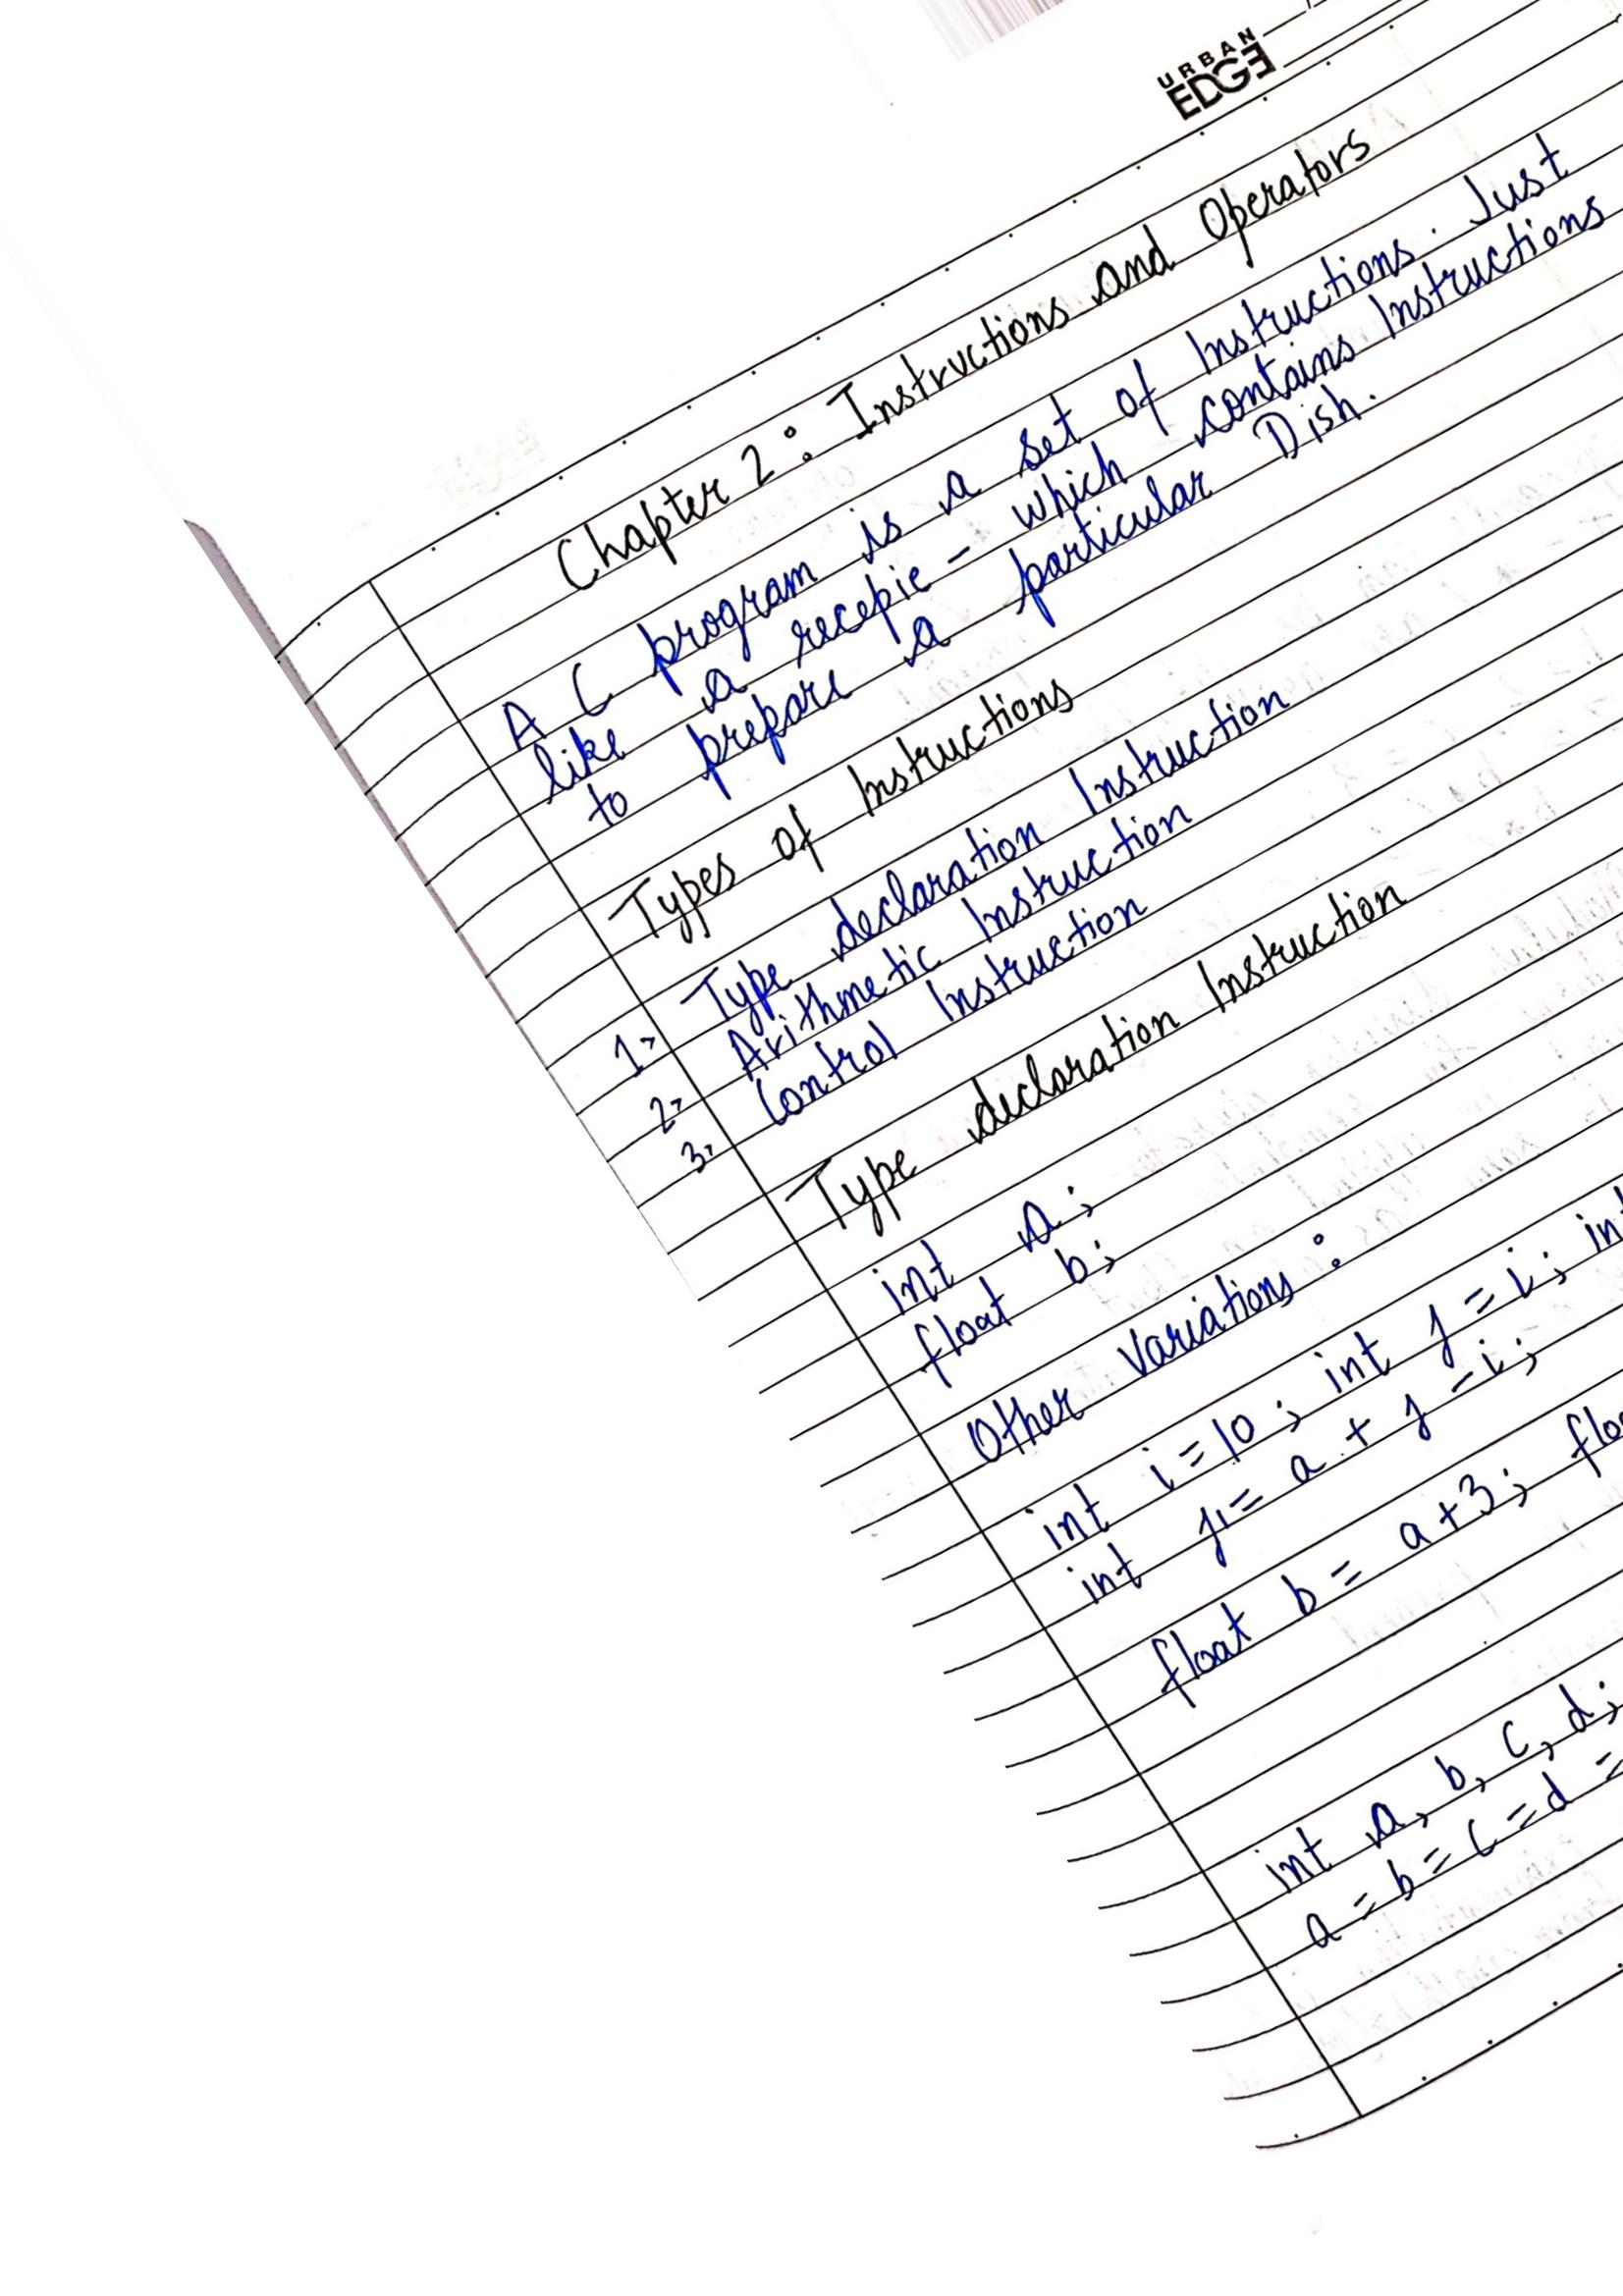 URBAN
EDGE
Chapter 2: Instructions and Operators
A C program is a set of Instructions. Just
like a recepie - which contains Instructions
to prepare a particular Dish.
Types of Instructions
1. Type declaration Instruction
2. Arithmetic Instruction
3. Control Instruction
Type declaration Instruction
int a;
float b;
Other Variations:
int i = 10; int j = i; int
int j1 = a + j - i;
float b = a+3; flo
int a, b, c, d;
a = b = c = d =